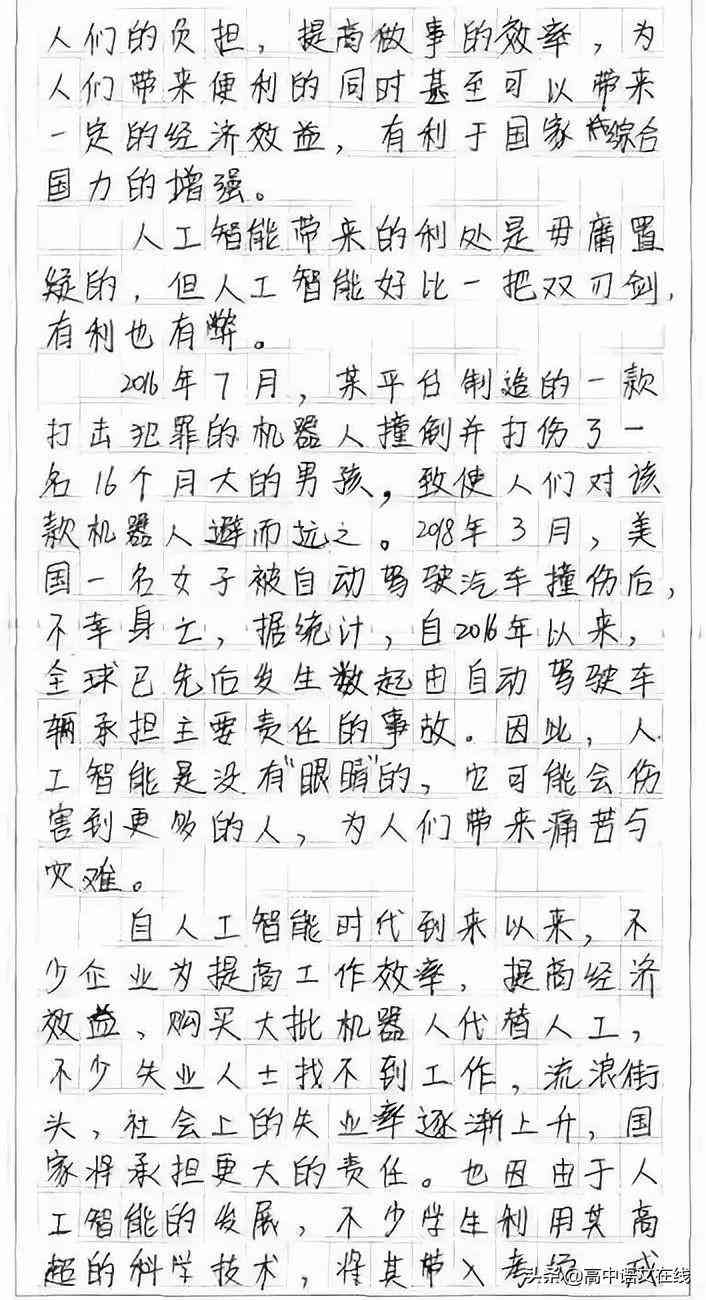 人们的负担，提高做事的效率，为
人们带来便利的同时甚至可以带来
一定的经济效益，有利于国家综合
国力的增强。
人工智能带来的利处是毋庸置
疑的，但人工智能好比一把双刃剑，
有利也有弊。
2016年7月，某平台制造的一款
打击犯罪的机器人撞倒并打伤了一
名16个月大的男孩，致使人们对该
款机器人避而远之。2018年3月，美
国一名女子被自动驾驶汽车撞伤后，
不幸身亡，据统计，自2016年以来，
全球已先后发生数起由自动驾驶车
辆承担主要责任的事故。因此，人
工智能是没有"眼睛"的，它可能会伤
害到更多的人，为人们带来痛苦与
灾难。
自人工智能时代到来以来，不
少企业为提高工作效率，提高经济
效益、购买大批机器人代替人工，
不少失业人士找不到工作，流浪街
头，社会上的失业率逐渐上升，国
家将承担更大的责任。也因由于人
工智能的发展，不少学生利用其高
超的科学技术，将其带入考场，或
头条@高中语文在线